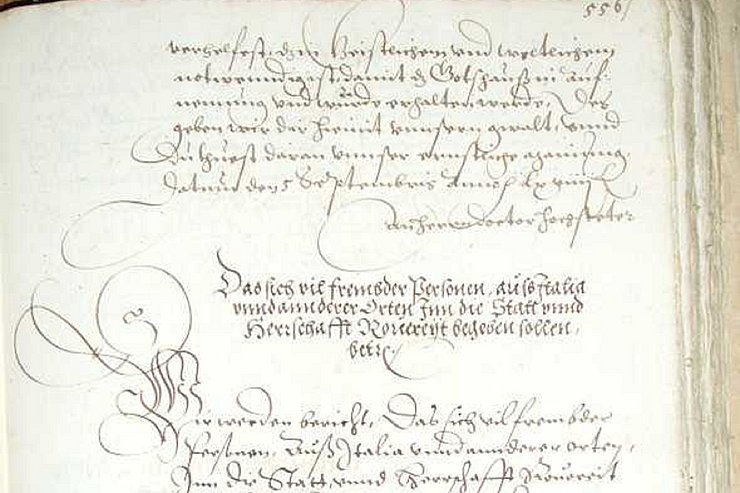 556
verhelfest, den Geistlichem vnnd weltlichem
notwenndigest, damit dz Gotshauß in auf-
nemung vnd würde erhalten werde, Des
geben wir dir hiemit vnnsern gwalt, vnnd
Du thuest daran vnnser ernstliche mainung
Datum den 5 Septembris Anno lxiiii
An herrn doctor Hochsteter
Das sich vil frembder Personen, auss Italia
vnnd annderer Orten Inn die Statt vnnd
Herrschafft Rovereyt begeben sollen,
betr:
Wir werden bericht, Das sich vil frembder
Personen, Auß Italia vnnd annderer orten,
Inn die Statt vnnd Herrschafft Rovereit